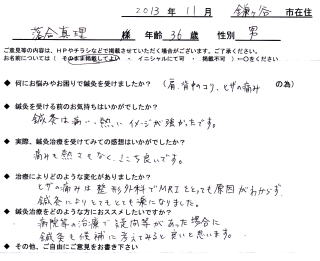 2013 年 11 月 鎌ヶ谷 市在住
落合真理 様 年齢 36 歳 性別 男
ご意見等の内容は、HPやチラシなどで掲載させていただく場合がございます。ご了承ください。
お名前については(そのまま掲載してよい ・ イニシャルにて可 ・ 掲載不可 )←○をください
◆ 何にお悩みやお困りで鍼灸を受けましたか? ( 肩、背中のコリ、ヒザの痛み の為)
◆ 鍼灸を受ける前のお気持ちはいかがでしたか?
鍼灸は痛い、熱い イメージが強かったです。
◆ 実際、鍼灸治療を受けてみての感想はいかがでしたか?
痛みも熱さもなく、ここち良いです。
◆ 治療によりどのような変化がありましたか?
ヒザの痛みは整形外科でMRIをとっても原因がわからず、
鍼灸によりとてもとても楽になりました。
◆ 鍼灸治療をどのような方におススメしたいですか?
病院等の治療で があった場合に
鍼灸も候補に考えてみると良いと思います。
◆ その他、ご自由にご意見をお書き下さい